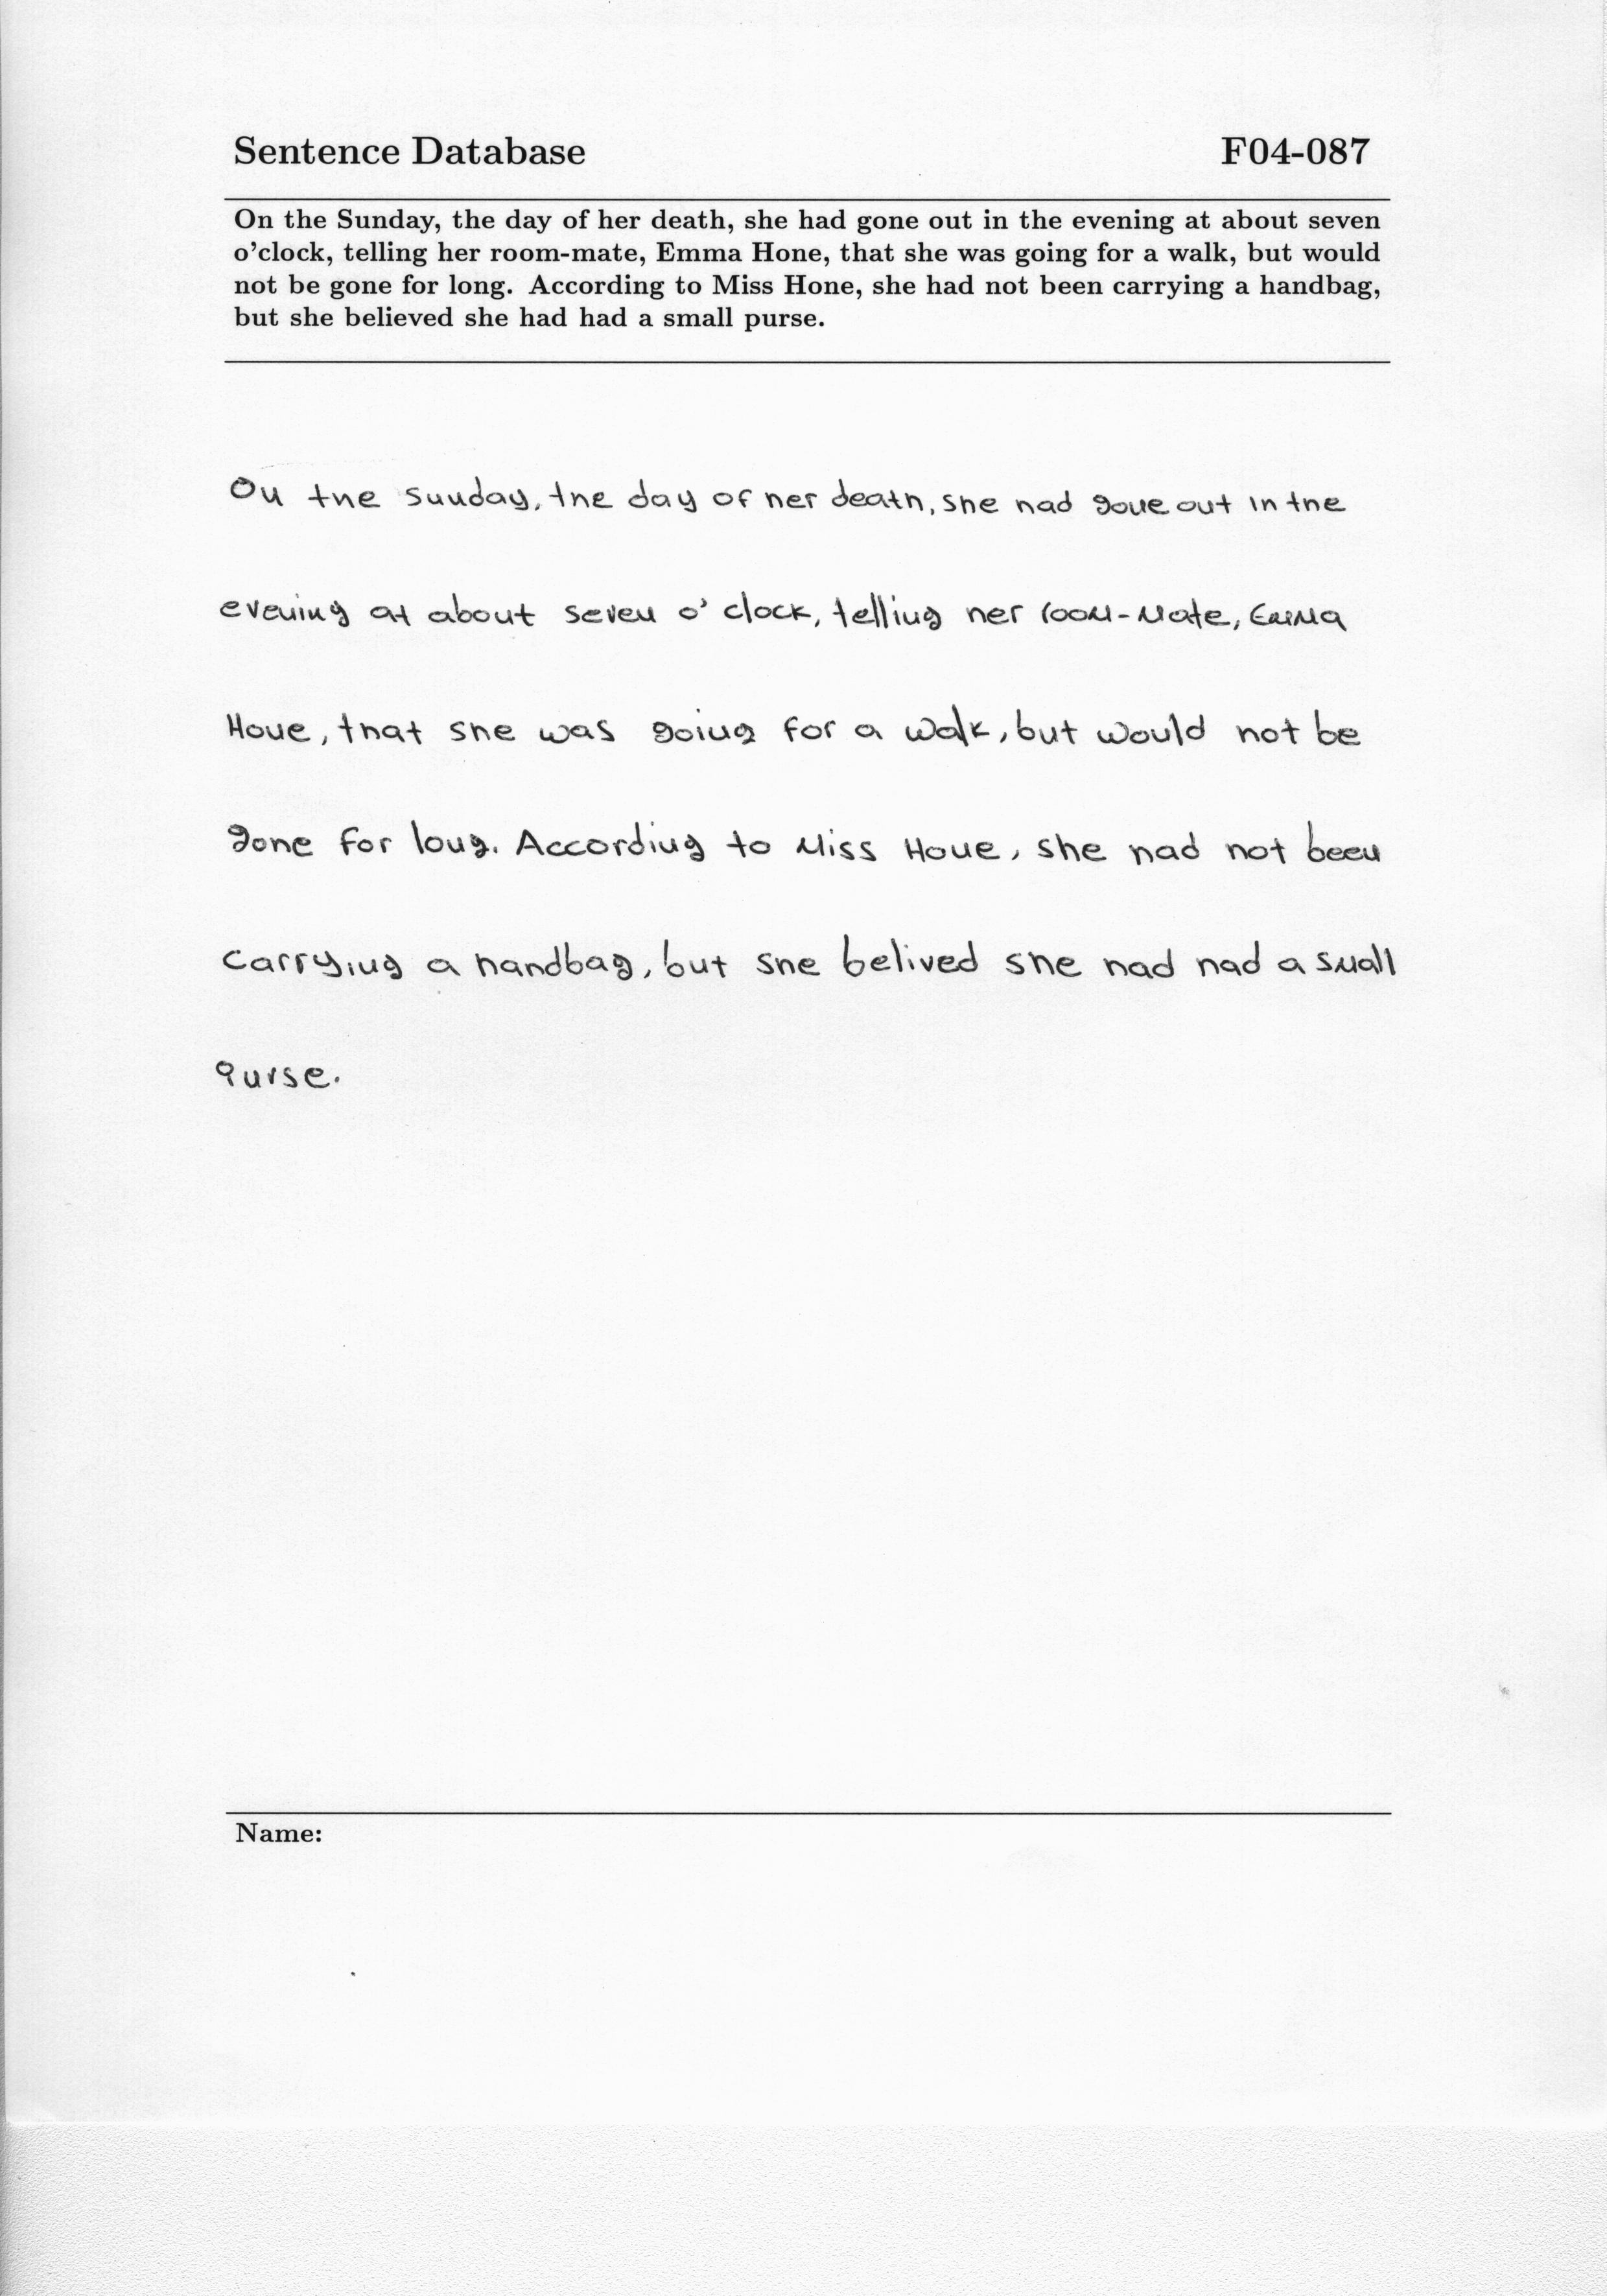 Sentence Database F04-087
On the Sunday, the day of her death, she had gone out in the evening at about seven
o'clock, telling her room-mate, Emma Hone, that she was going for a walk, but would
not be gone for long. According to Miss Hone, she had not been carrying a handbag,
but she believed she had had a small purse.
On the Sunday, the day of her death, she had gone out in the
evening at about seven o' clock, telling her room-mate, Emma
Hone, that she was going for a walk, but would not be
gone for long. According to Miss Hone, she had not been
carrying a handbag, but she belived she had had a small
purse.
Name: